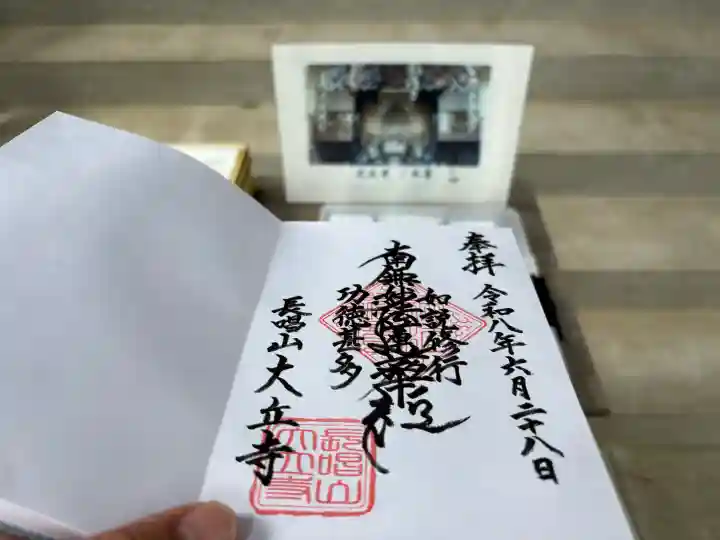 奉拝 令和八年六月二十八日
如説修行
南無妙法蓮華経
功徳甚多
長唱山大立寺
長唱山
大立寺